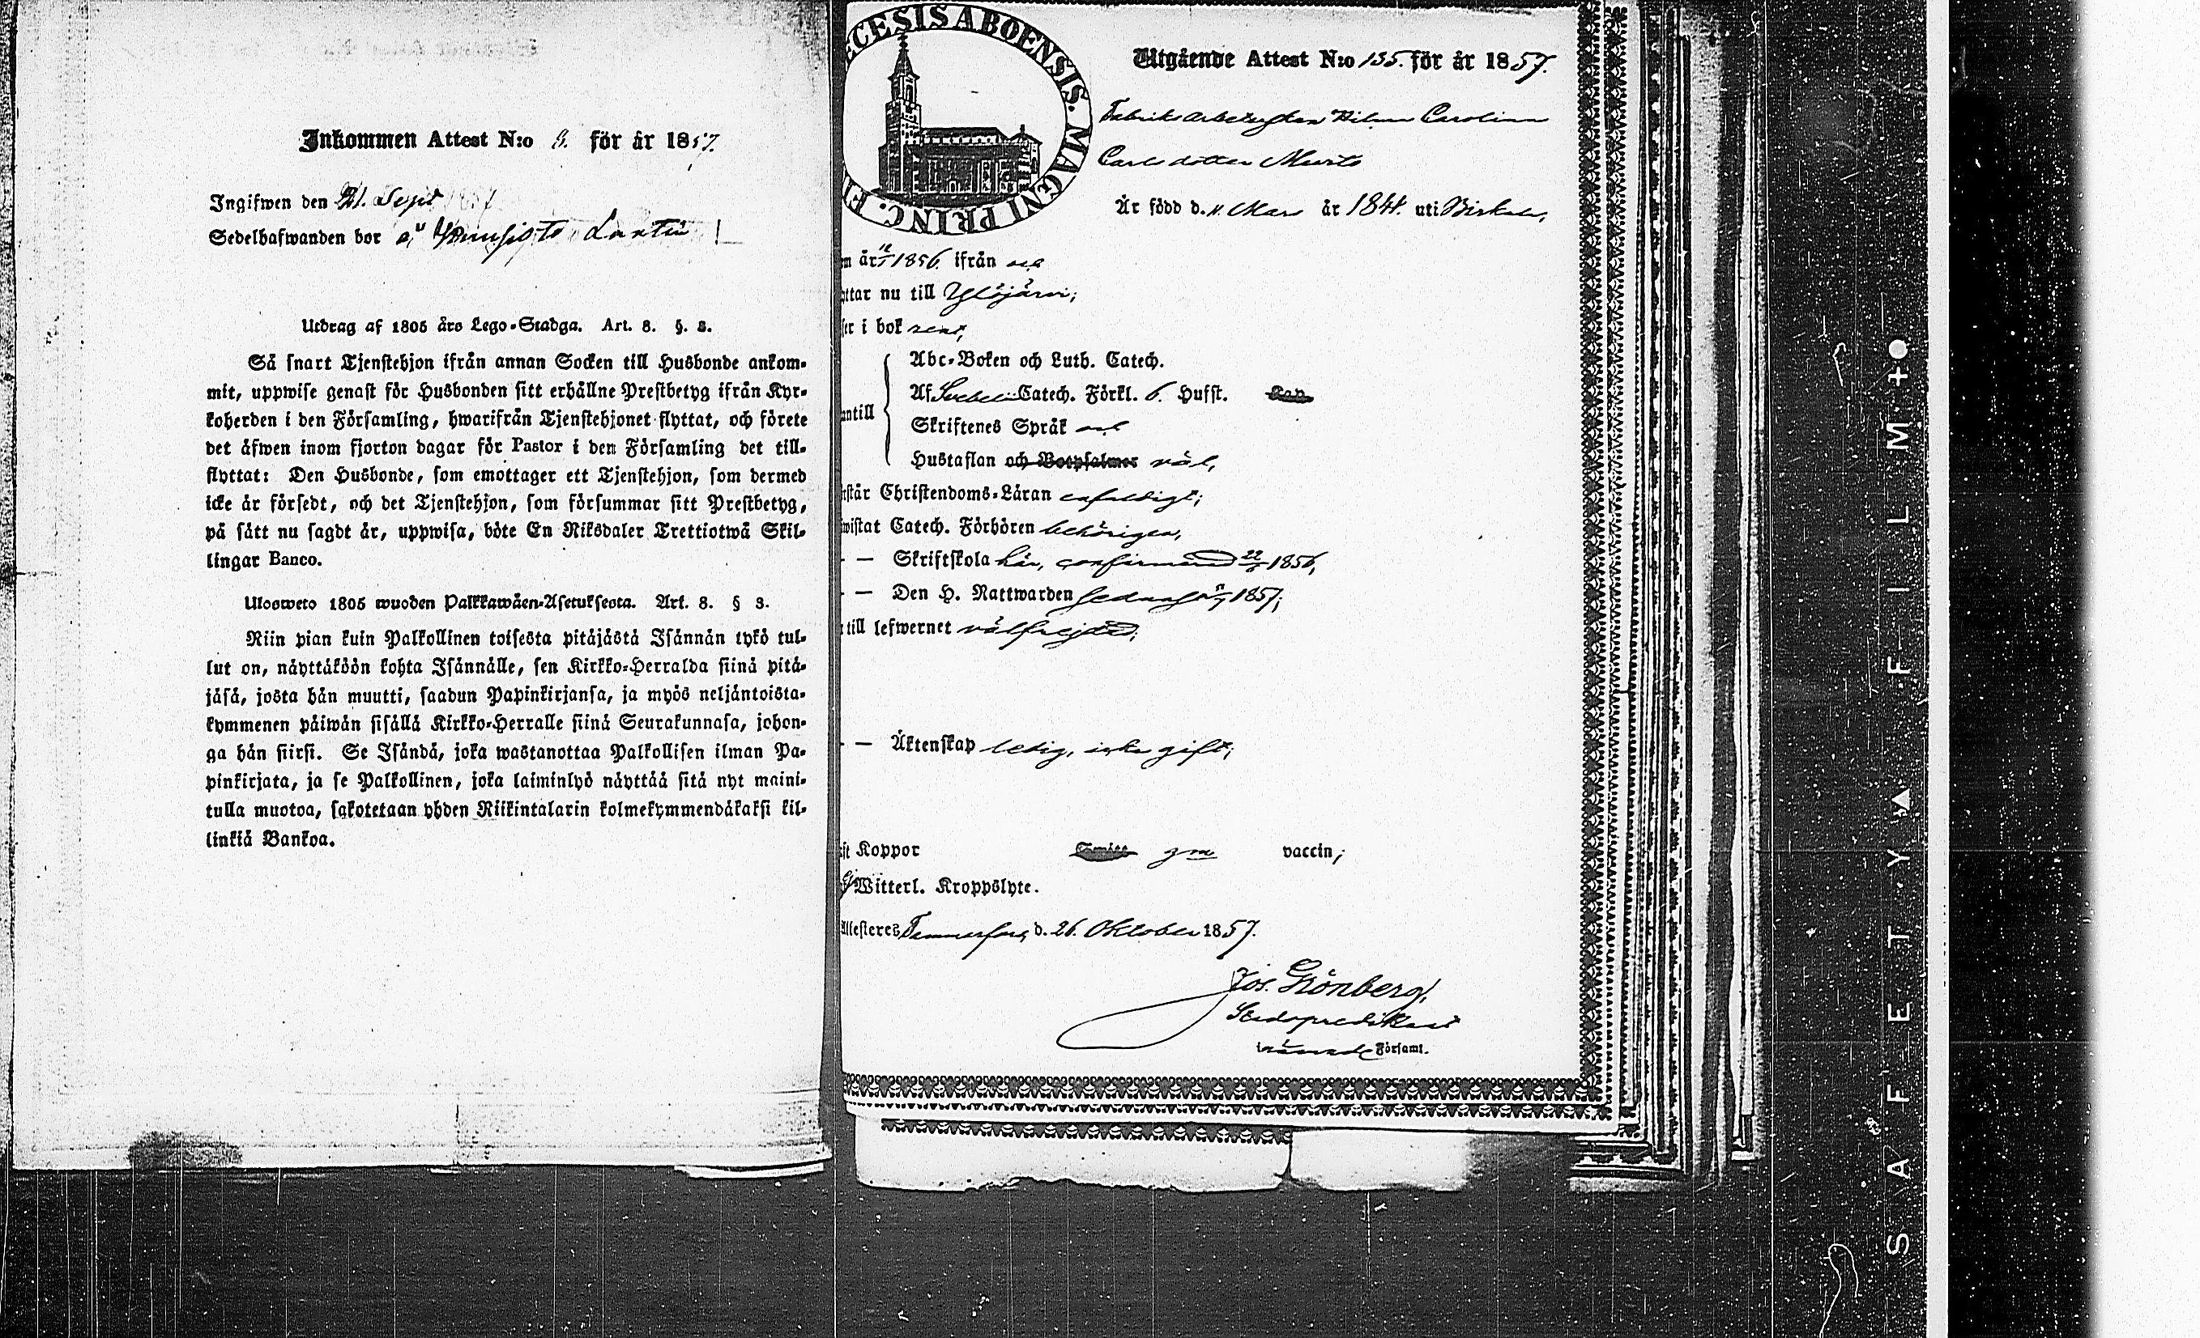 Inkommen Attest N:o 9. för år 1857.
Ingifwen den 21. Sept 1857
Sedelhafwanden bor
Utdrag af 1805 års Lego-Stadga. Art. 8. §. 3.
Så snart Tjenstehjon ifrån annan Socken till Husbonde ankom-
mit, uppwise genast för Husbonden sitt erhållne Prestbetyg ifrån Kyr-
koherden i den Församling, hwarifrån Tjenstehjonet flyttat, och förete
det äfwen inom fjorton dagar för Pastor i den Församling det till-
flyttat: Den Husbonde, som emottager ett Tjenstehjon, som dermed
icke är försedt, och det Tjenstehjon, som försummar sitt Prestbetyg,
på sätt nu sagdt är, uppwisa, böte En Riksdaler Trettiotwå Skil-
lingar Banco.
Ulosweto 1805 wuoden Palkkawäen-Asetuksesta. Art. 8. § 3.
Niin pian kuin Palkollinen toisesta pitäjästä Isännän tykö tul-
lut on, näyttäköön kohta Isännälle, sen Kirkko-Herralda siinä pitä-
jäsä, josta hän muutti, saadun Papinkirjansa, ja myös neljäntoista-
kymmenen päiwän sisällä Kirkko-Herralle siinä Seurakunnasa, johon-
ga hän siirsi. Se Isändä, joka wastanottaa Palkollisen ilman Pa-
pinkirjata, ja se Palkollinen, joka laiminlyö näyttää sitä nyt maini-
tulla muotoa, sakotetaan yhden Riikintalarin kolmekymmendäkaksi kil-
linkiä Bankoa.
ECESIS ABOENSIS. MAGNI PRINC. FI
Utgående Attest N:o 135. för år 1857.
Fabriks arbeterskan Wilma Carolina
Carls dotter Murto
Är född d. 11 Mars år 1844. uti Birkala,
m år 1856. ifrån
yttar nu till Ylöjärvi;
ser i bok rent,
antill
Abc-Boken och Luth. Catech.
Af Svebelii Catech. Förkl. 6. Hufst. Kap.
Skriftenes Språk
Hustaflan och Botpsalmer väl,
rstår Christendoms-Läran enfaldigt;
wistat Catech. Förhören behörigen,
- — Skriftskola här, confirmerad 22/6 1856,
- — Den H. Nattwarden 1857;
till lefwernet välfrejdad;
- — Äktenskap ledig, icke gift;
ft Koppor gm vaccin;
Witterl. Kroppslyte.
Attesteres Tammerfors, d. 26. Oktober 1857.
Jos. Grönberg,
Stadspredikant
Församl.
SAFETY ▲ FILM +●